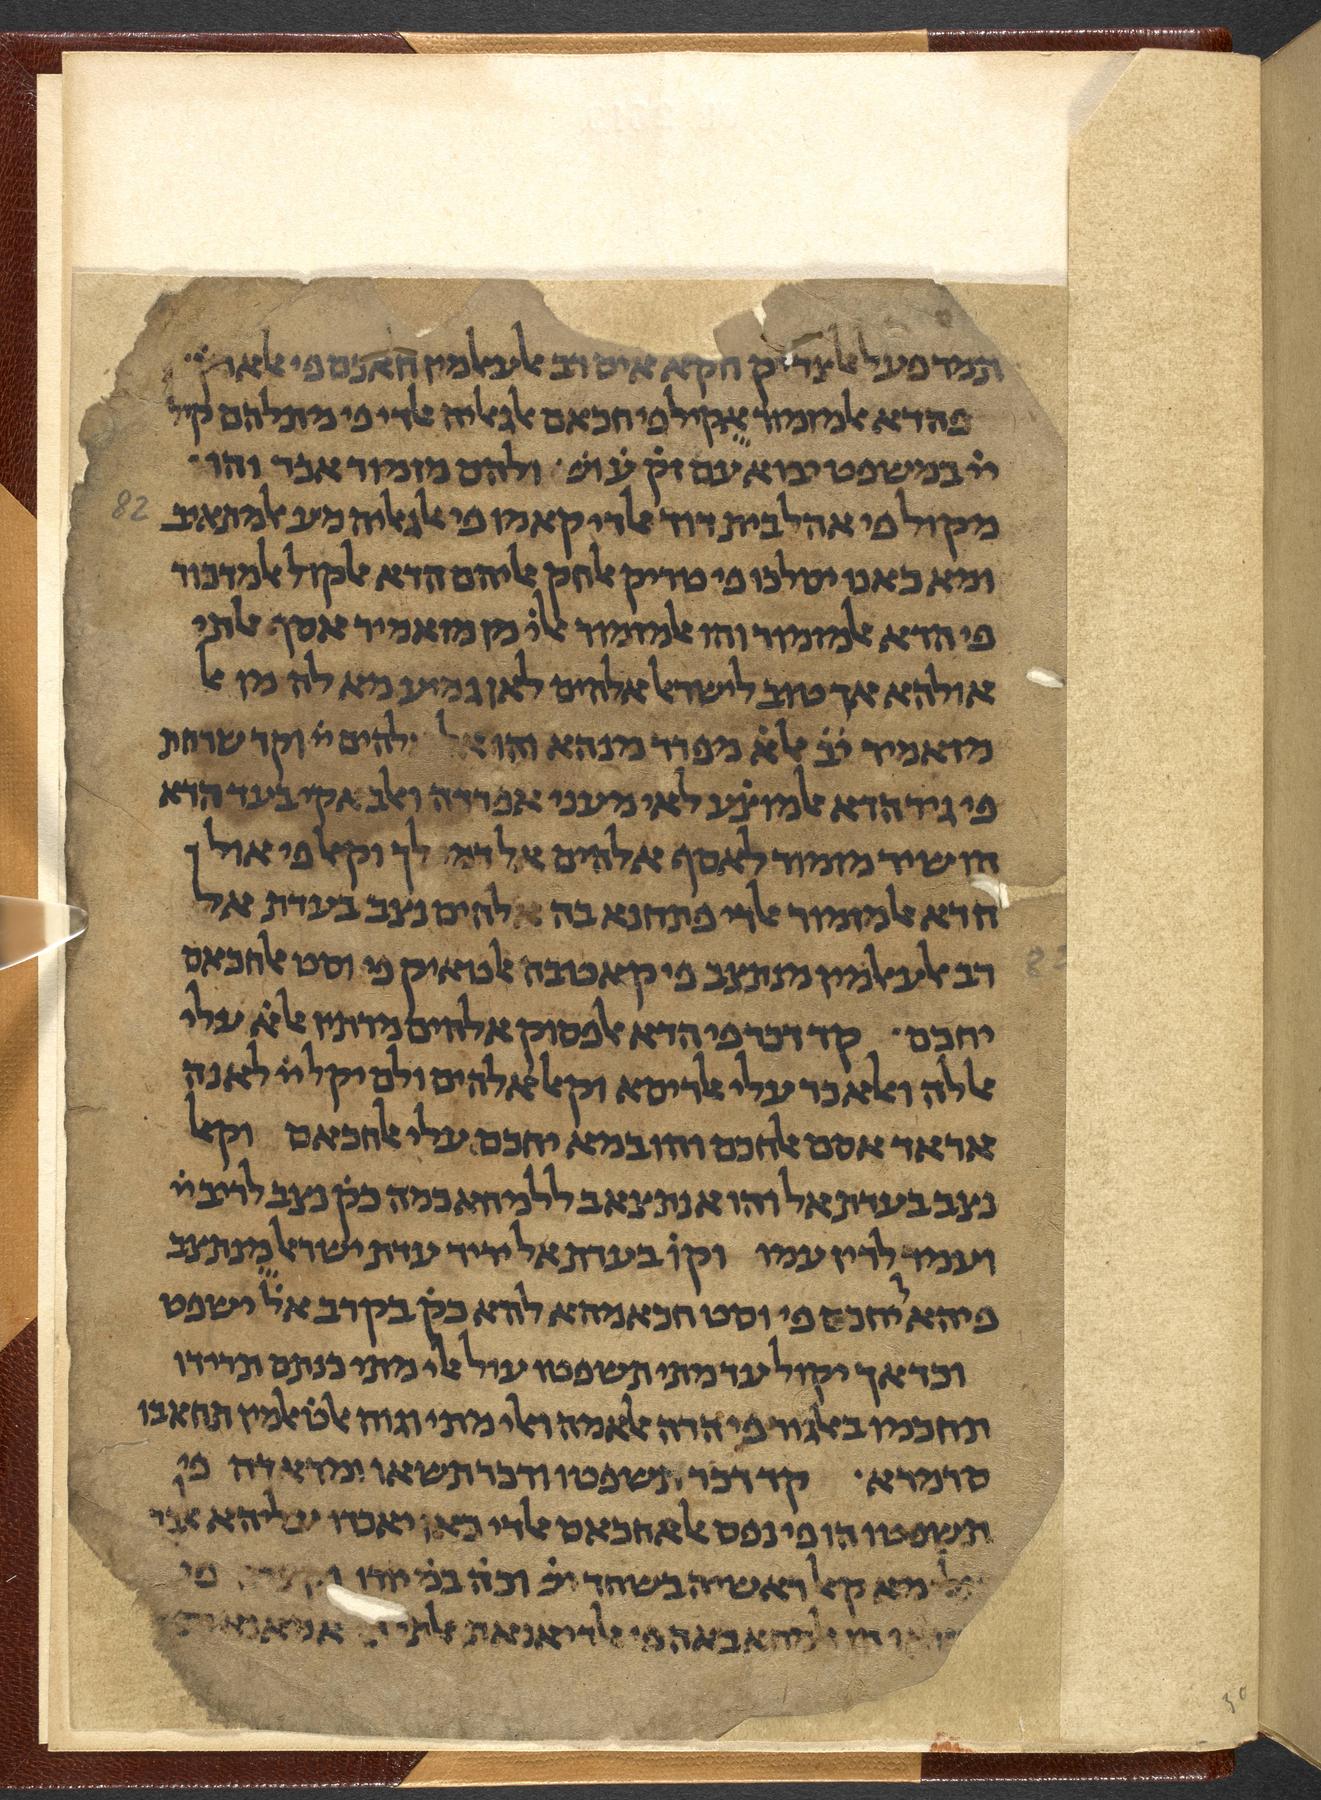 חקא אים רב אלעאלמין חאכם פי אלארץ̇
פהדא אלמזמור אקיל פי חכאם אלגאליה אלדי פי מתלהם קיל
ייֹ במשפט יבוא עם זקֹ עֹוׄ ולהם מזמור אכר והו
מקול פי אהל בית דוד אלדי קאמו פי אלגאליה מע אלמתאיב
ומא כאנו יסלכו פי טריק אלחק אליהם הדא אלקול אלמדכור
פי הדא אלמזמור והו אלמזמור אלוֹ מן מזאמיר אסף אלתי
אולהא אך טוב לישראל אלהים לאן גמיע מא לה מן אל
מזאמיר יׄבׄ אלאׄ מפרד מנהא והו ייֹ וקד שרחת
פי גיר הדא אלמוצׄע לאי מעני אפרדה בעד הדא
הו שיר מזמור לאסף אלהים אל דמי לך וקאל פי אול
הדא אלמזמור אלדי פתחנא בה אלהים נצב בעדת אל
רב אלעאלמין מנתצב פי וסט אלחכאם
יחכם קד דכר פי הדא אלפסוק אלהים מרתין אלאׄ עלי
אללה ואלאכר עלי וקאל אלהים ולם יקל ייֹ לאנה
אראד אסם אלחכם והו במא יחכם עלי אלחכאם וקאל
נצב בעדת אל והו אנתצאב ללמחאכמה כקֹ נצב לריב ייֹ
ועמד לדין עמו וקוֹ בעדת אל יריד עדת ישראל מנתצב
פיהא ליחכם פי וסט חכאמהא להדא כקֹ בקרב אל ישפט
וכדאך יקול עד מתי תשפטו עול אלי מתי כנתם תרידו
תחכמו באלגור פי הדה אלאמה ואלי מתי וגוה אלטׄאלמין תחאבו
סרמדא קד דכר תשפטו ודכר תשאו
תשפטו הו פי נפס אלאחכאם אלדי כאן יאכדו עליהא
מא קאל ראשיה בשחד יׄפׄ וכהׄ בׄמׄ יורו פי